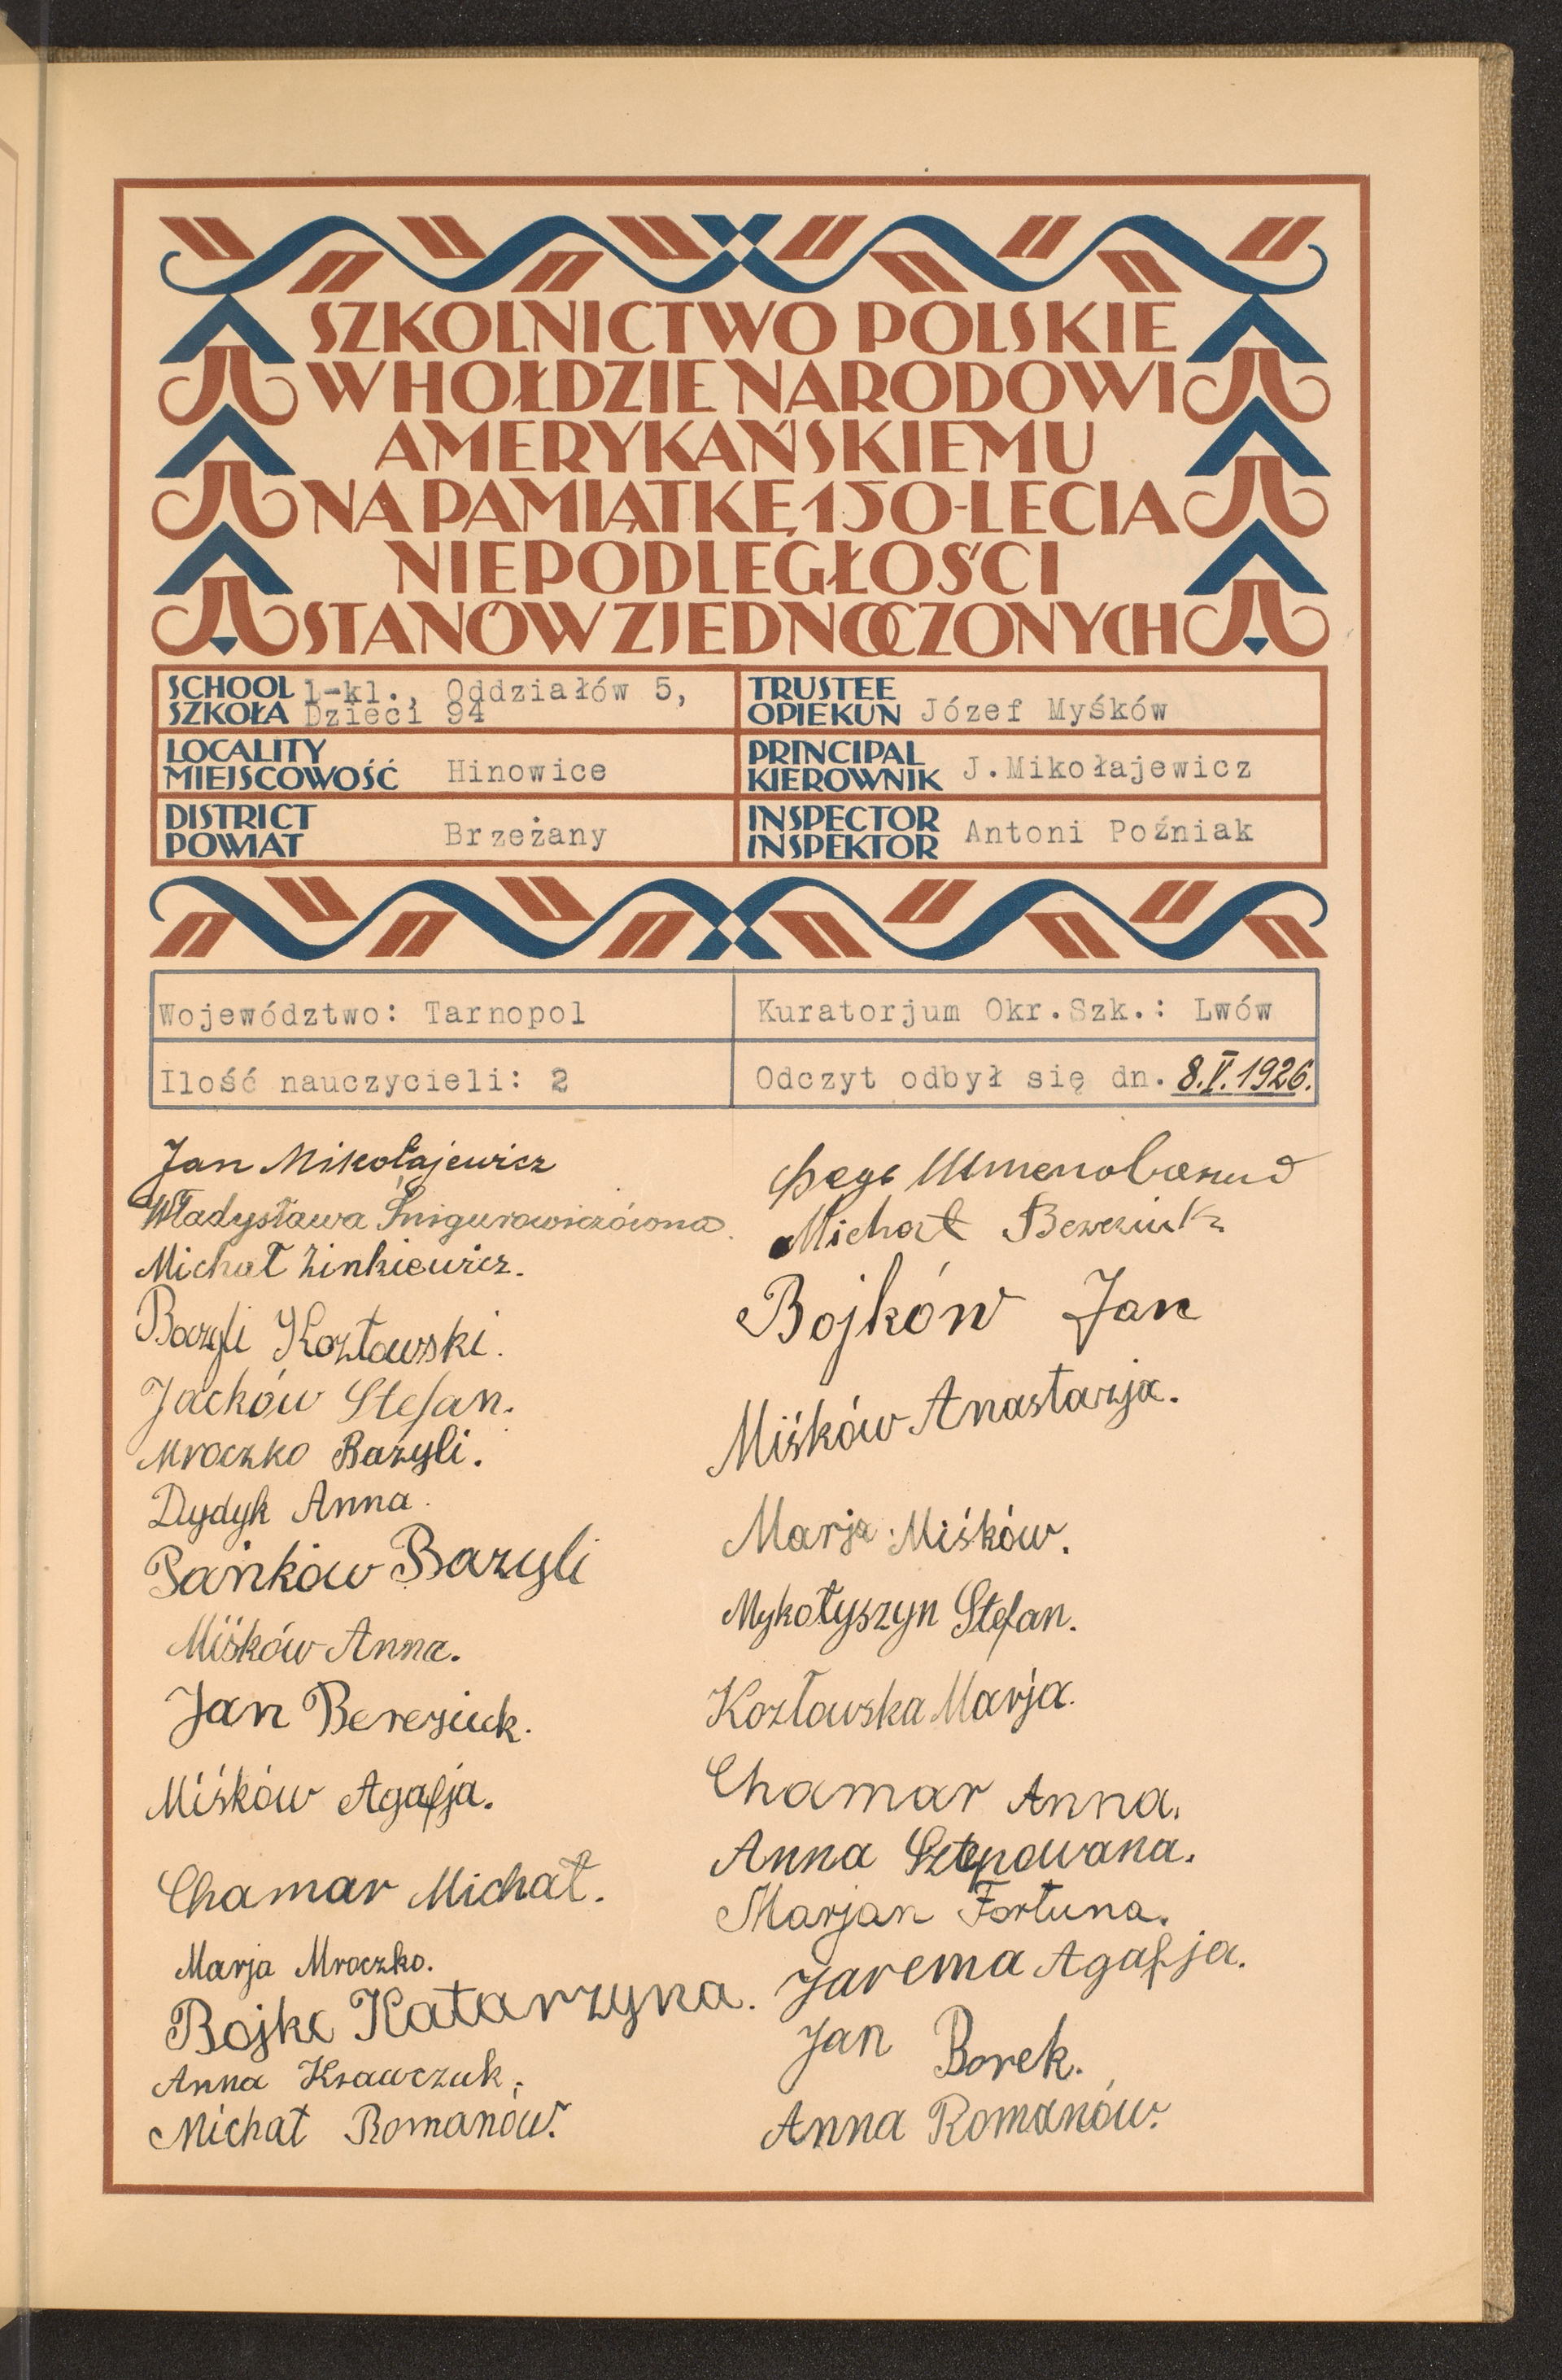 SZKOLNICTWO POLSKIE
W HOŁDZIE NARODOWI
AMERYKAŃSKIEMU
NA PAMIĄTKĘ 150-LECIA
NIEPODLEGŁOŚCI
STANÓW ZJEDNOCZONYCH
SCHOOL
SZKOŁA
1-kl., Oddziałów 5,
Dzieci 94
TRUSTEE
OPIEKUN
Józef Myśków
LOCALITY
MIEJSCOWOŚĆ
Hinowice
PRINCIPAL
KIEROWNIK
J.Mikołajewicz
DISTRICT
POWIAT
Brzeżany
INSPECTOR
INSPEKTOR
Antoni Poźniak
Województwo: Tarnopol
Kuratorjum Okr.Szk.: Lwów
Ilość nauczycieli: 2
Odczyt odbył się dn. 8.V.1926.
Jan Mikołajewicz
Władysława Śnigurowiczówna
Michał Zinkiewicz.
Bazyli Kozłowski.
Jacków Stefan.
Mroczko Bazyli.
Dydyk Anna.
Pańków Bazyli
Miśków Anna.
Jan Bereziuk.
Miśków Agafja.
Chamar Michał.
Marja Mroczko.
Bojko Katarzyna.
Anna Krawczuk.
Michał Romanów.
Michał
Bojków Jan
Miśków Anastazja.
Marja Miśków.
Mykołyszyn Stefan.
Kozłowska Marja.
Chamar Anna.
Anna
Marjan Fortuna.
Jarema Agafja.
Jan Borek.
Anna Romanów.